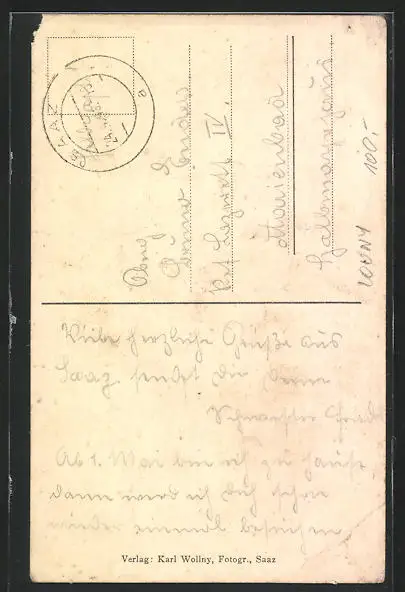 SAAZ
a
Abs.
Res. Lazarett IV.
Marienbad
Halbmayrhaus
LOUNY
100,-
Viele herzliche Grüße aus
Saaz sendet dir deine
Schwester
Ab 1. Mai bin ich zu Hause,
dann werd ich dich schon
wieder einmal besuchen.
Verlag: Karl Wollny, Fotogr., Saaz